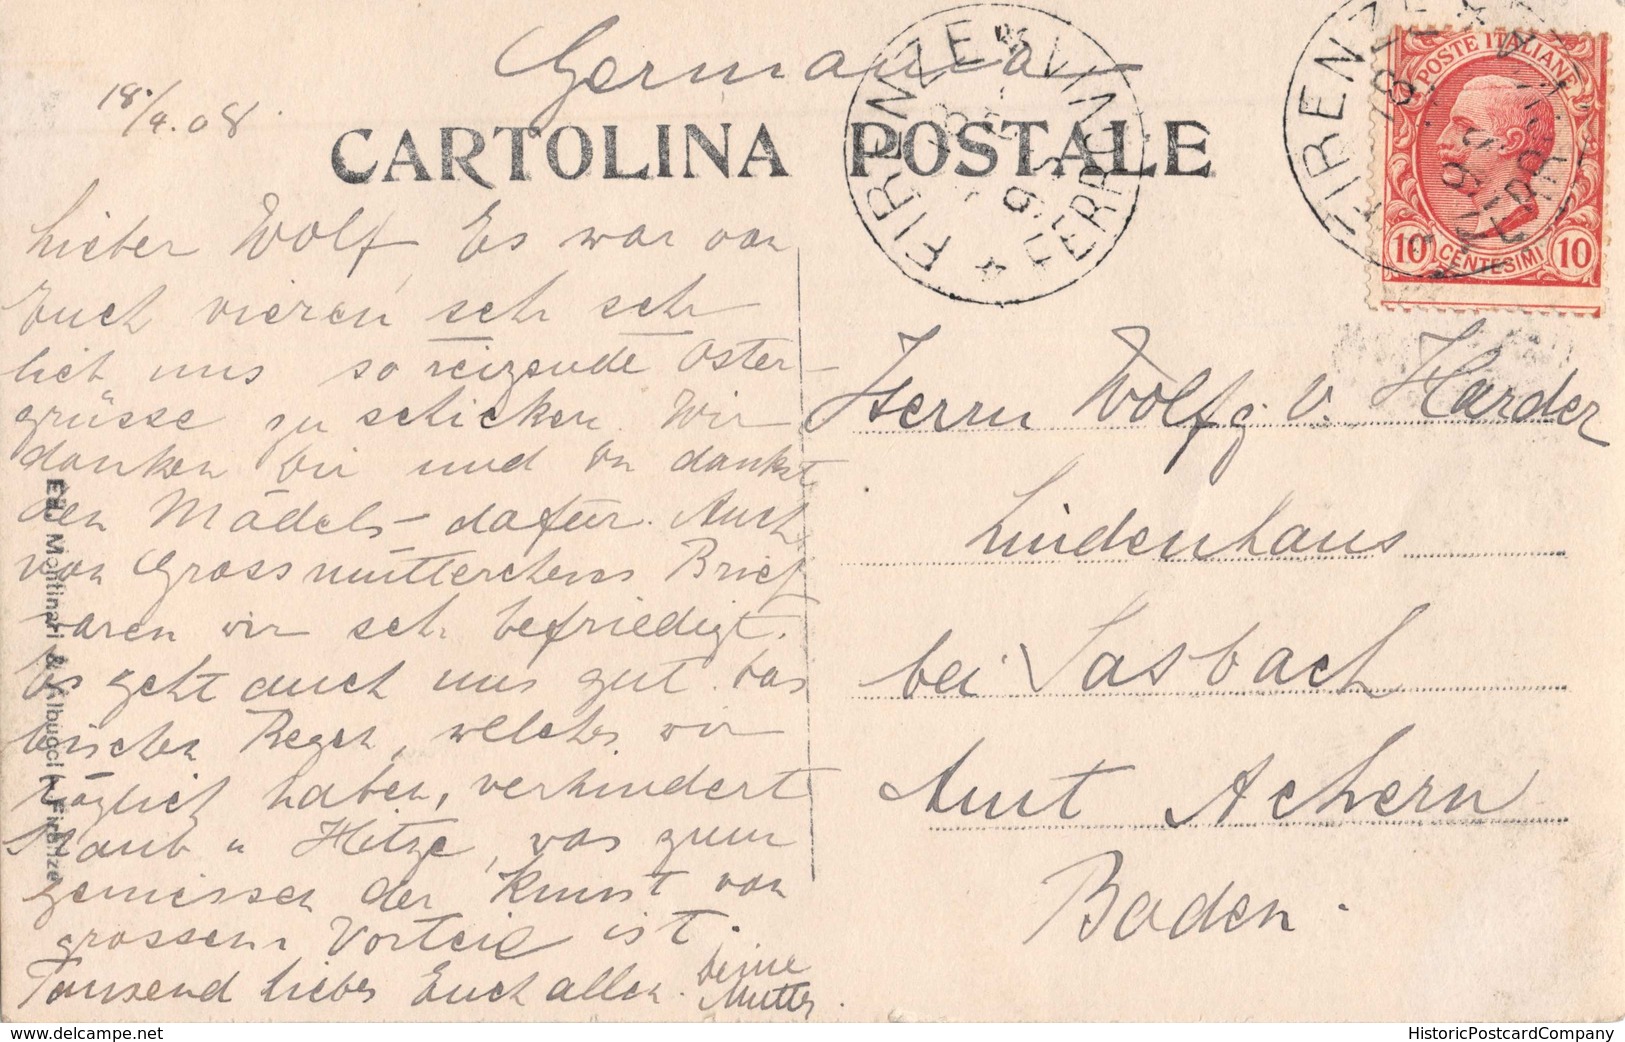 Germania
18./4.08.
CARTOLINA POSTALE
FIRENZE FERROVIA
FIRENZE FERROVIA
POSTE ITALIANE
10 CENTESIMI 10
Lieber Wolf, Es war von
Euch vieren sehr sehr
lieb uns so reizende Oster-
grüsse zu schicken. Wir
danken Dir und Du dankst
den Mädels dafür. Auch
von Grossmütterchens Brief
waren wir sehr befriedigt.
Es geht auch uns gut. Das
bischen Regen, welches wir
täglich haben, verhindert
Staub u Hitze, was zum
geniessen der Kunst von
grossem Vorteil ist.
Tausend liebes Euch allen. Deine
Mutter.
Herrn Wolfg. v. Harder
Lindenhaus
bei Sasbach
Amt Achern
Baden.
Montinari & Firenze
www.delcampe.net
HistoricPostcardCompany